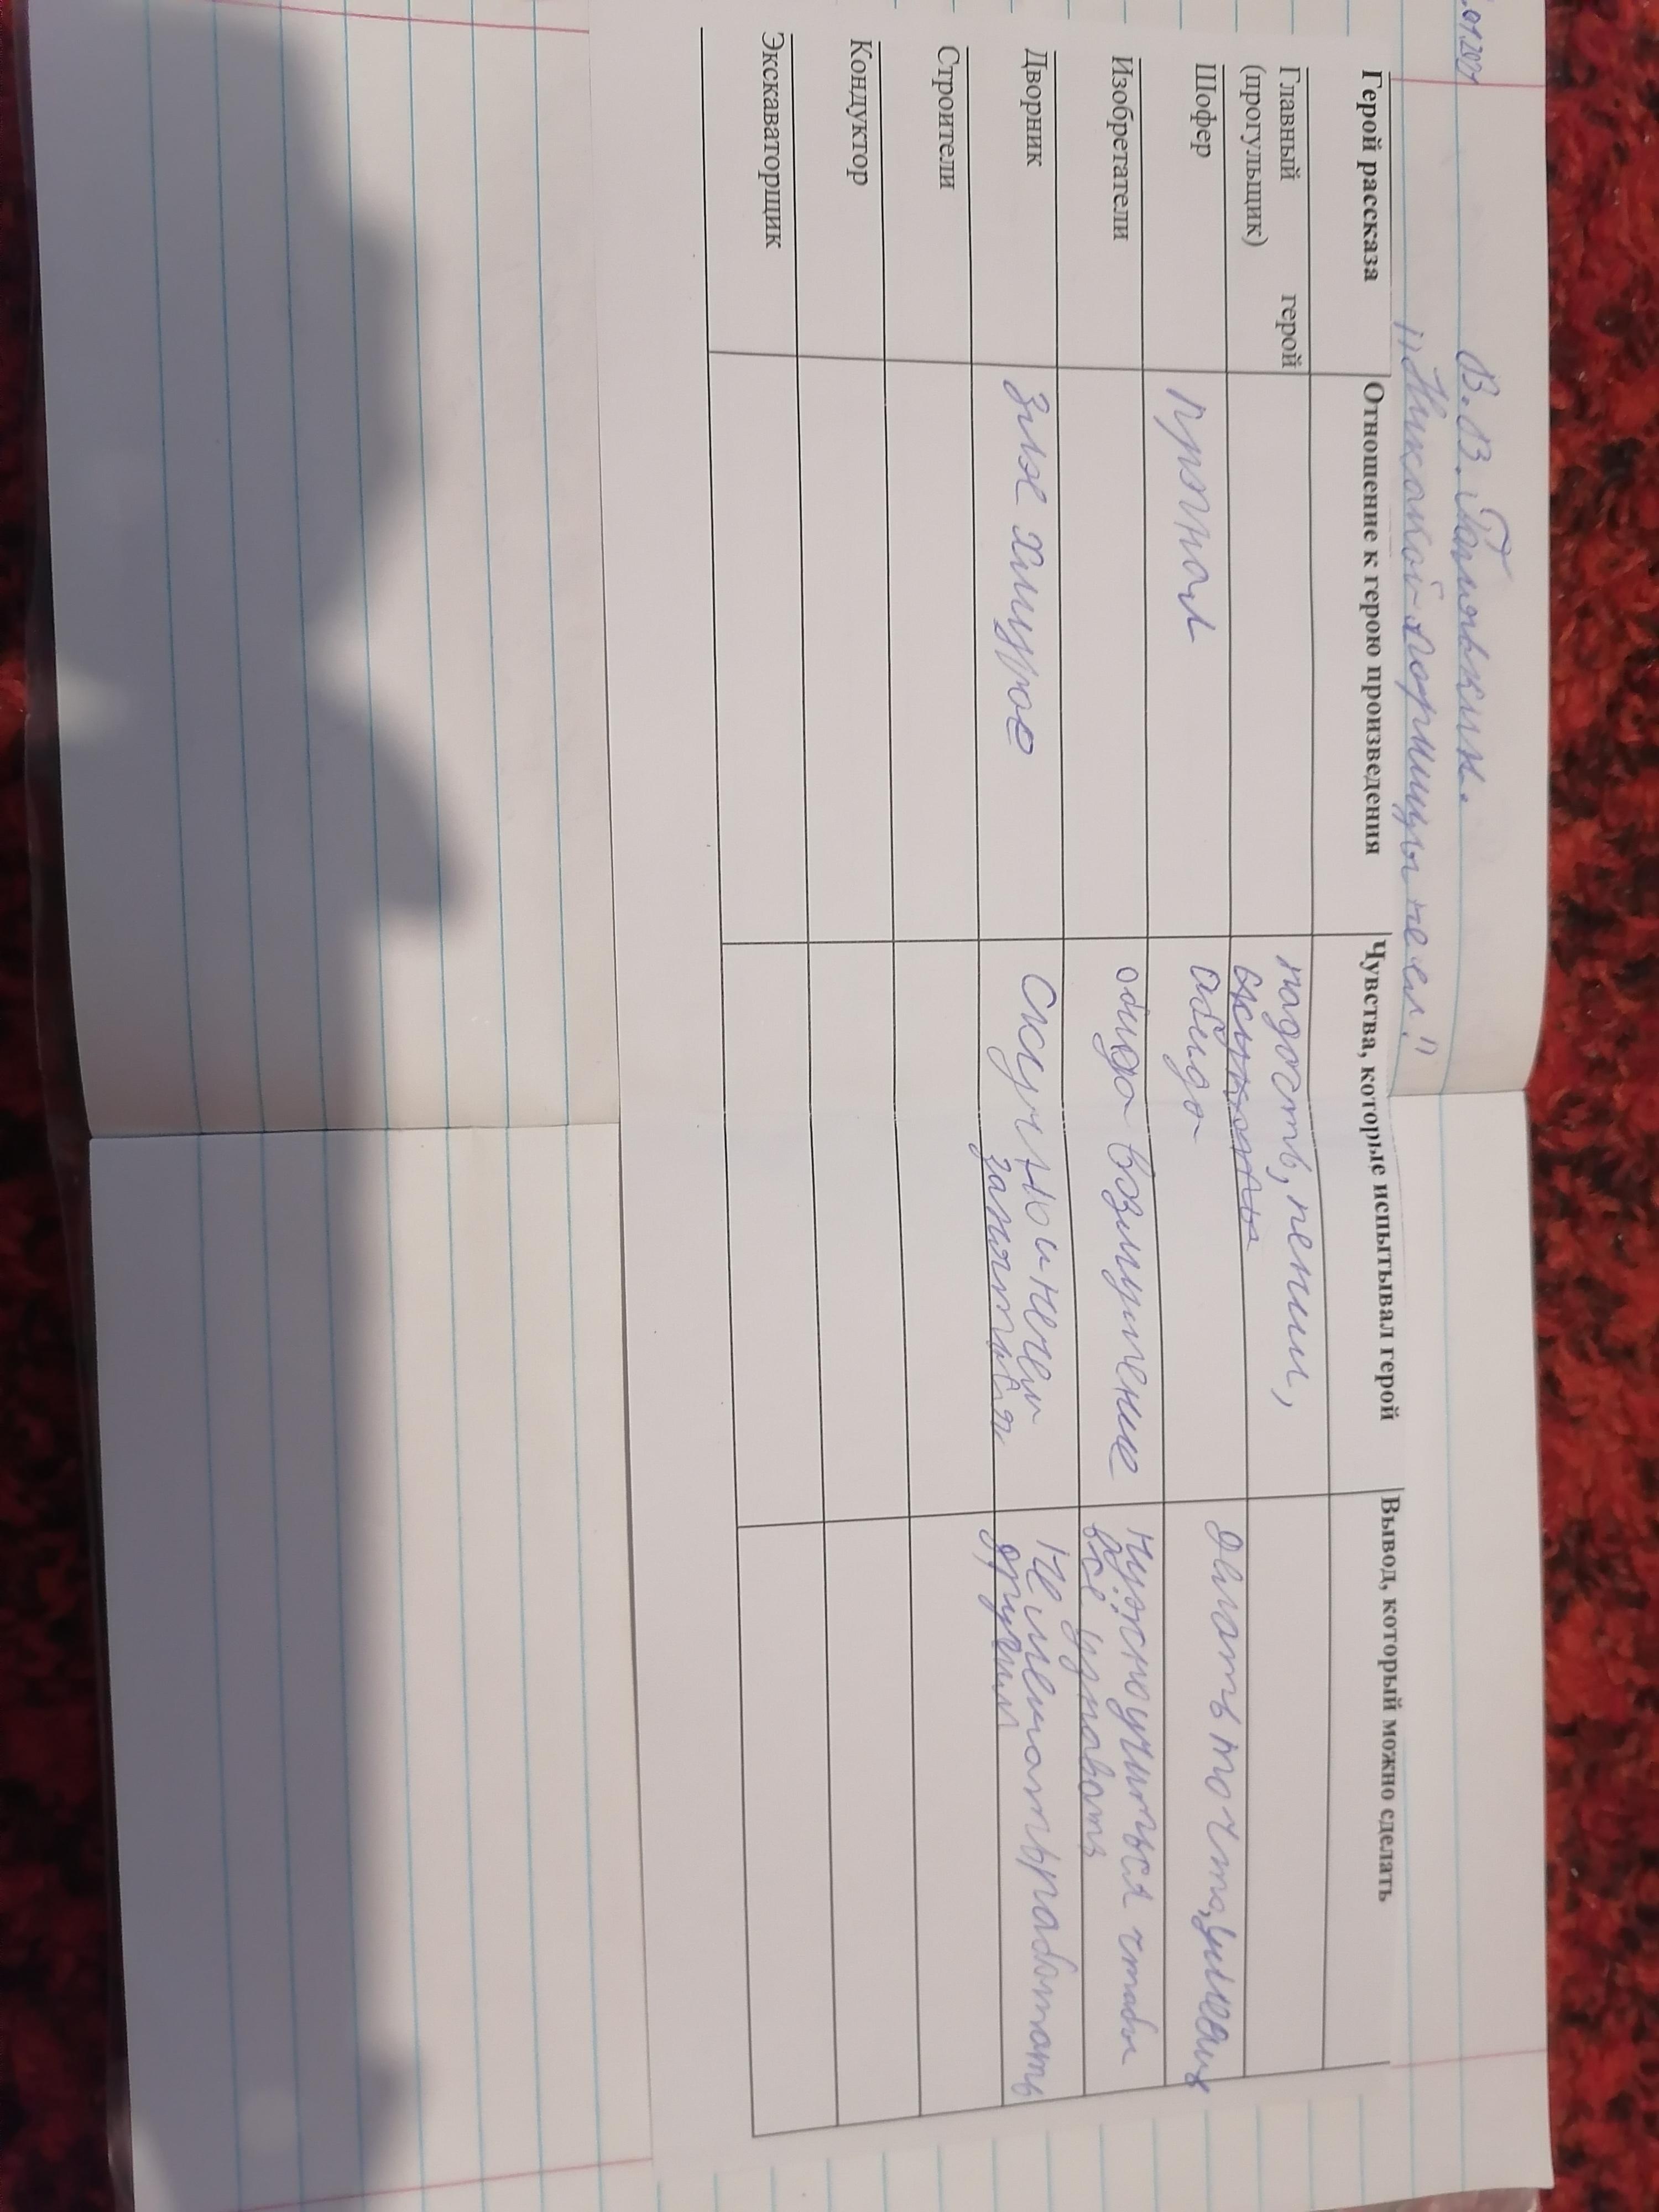 .01.2021
В. В. Голявкин.
"Никакой горчицы не ел"
Герой рассказа Отношение к герою произведения Чувства, которые испытывал герой Вывод, который можно сделать
Главный герой
(прогульщик)
радость,
Шофер прогнал обида делать то что умеешь
Изобретатели обида возмущение нужно учиться чтобы
всё узнавать
Дворник Злое хмурое Скучно и нечем
заняться
Не мешать работать
другим
Строители
Кондуктор
Экскаваторщик